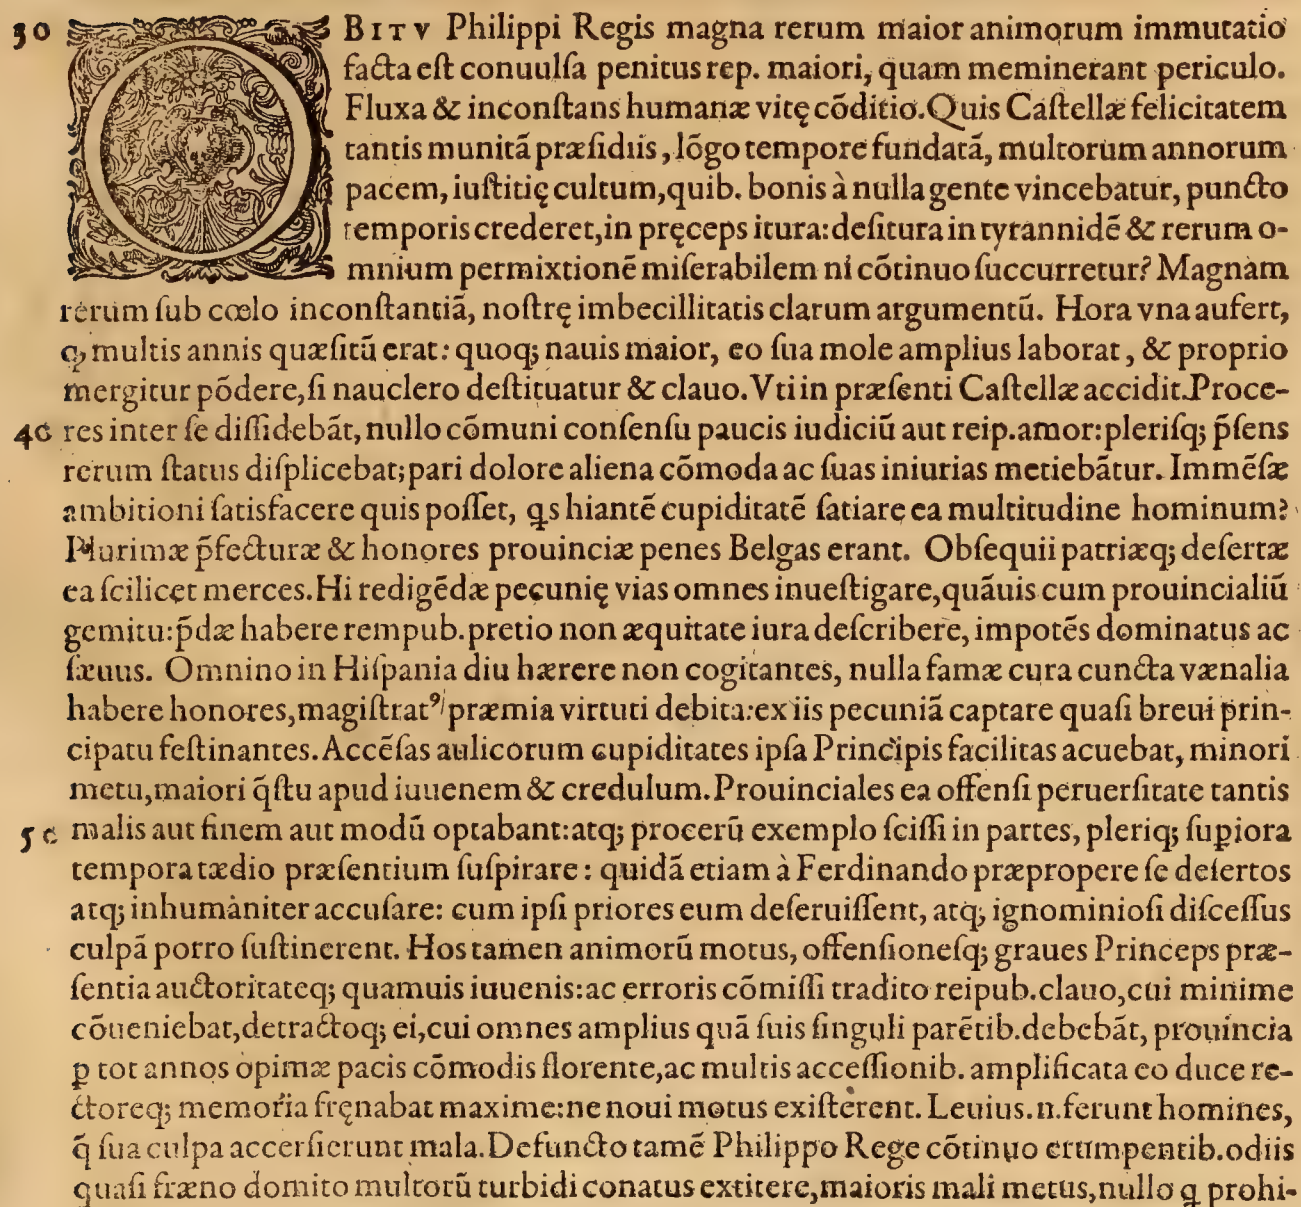 30 OBITV Philippi Regis magna rerum maior animorum immutatio
facta eſt conuulſa penitus rep. maiori, quam meminerant periculo.
Fluxa & inconſtans humanæ vitę cõditio. Quis Caſtellæ felicitatem
tantis munitã præſidiis, lõgo tempore fundatã, multorum annorum
pacem, iuſtitię cultum, quib. bonis à nulla gente vincebatur, puncto
temporis crederet, in pręceps itura: deſitura in tyrannidẽ & rerum o-
mnium permixtionẽ miſerabilem ni cõtinuo ſuccurretur? Magnam
rerum ſub cœlo inconſtantiã, noſtrę imbecillitatis clarum argumentũ. Hora vna aufert,
ꝙ multis annis quæſitũ erat: quoq; nauis maior, eo ſua mole amplius laborat, & proprio
mergitur põdere, ſi nauclero deſtituatur & clauo. Vti in præſenti Caſtellæ accidit. Proce-
40 res inter ſe diſſidebãt, nullo cõmuni conſenſu paucis iudiciũ aut reip. amor: pleriſq; p̃ſens
rerum ſtatus diſplicebat; pari dolore aliena cõmoda ac ſuas iniurias metiebãtur. Immẽſæ
ambitioni ſatisfacere quis poſſet, ꝗs hiantẽ cupiditatẽ ſatiare ea multitudine hominum?
Plurimæ p̃fecturæ & honores prouinciæ penes Belgas erant. Obſequii patriæq; deſertæ
ea ſcilicet merces. Hi redigẽdæ pecunię vias omnes inueſtigare, quãuis cum prouincialiũ
gemitu: p̃dæ habere rempub. pretio non æquitate iura deſcribere, impotẽs dominatus ac
ſæuus. Omnino in Hiſpania diu hærere non cogitantes, nulla famæ cura cuncta vænalia
habere honores, magiſtratꝰ præmia virtuti debita: ex iis pecuniã captare quaſi breui prin-
cipatu feſtinantes. Accẽſas aulicorum cupiditates ipſa Principis facilitas acuebat, minori
metu, maiori q̃ſtu apud iuuenem & credulum. Prouinciales ea offenſi peruerſitate tantis
50 malis aut finem aut modũ optabant: atq; procerũ exemplo ſciſſi in partes, pleriq; ſuꝑiora
tempora tædio præſentium ſuſpirare: quidã etiam à Ferdinando præpropere ſe deſertos
atq; inhumaniter accuſare: cum ipſi priores eum deſeruiſſent, atq; ignominioſi diſceſſus
culpã porro ſuſtinerent. Hos tamen animorũ motus, offenſioneſq; graues Princeps præ-
ſentia auctoritateq; quamuis iuuenis: ac erroris cõmiſſi tradito reipub. clauo, cui minime
cõueniebat, detractoq; ei, cui omnes amplius quã ſuis ſinguli parẽtib. debebãt, prouincia
ꝑ tot annos opimæ pacis cõmodis florente, ac multis acceſſionib. amplificata eo duce re-
ctoreq; memoria fręnabat maxime: ne noui motus exiſterent. Leuius .n. ferunt homines,
q̃ ſua culpa accerſierunt mala. Defuncto tamẽ Philippo Rege cõtinuo erumpentib. odiis
quaſi fræno domito multorũ turbidi conatus extitere, maioris mali metus, nullo ꝗ prohi-